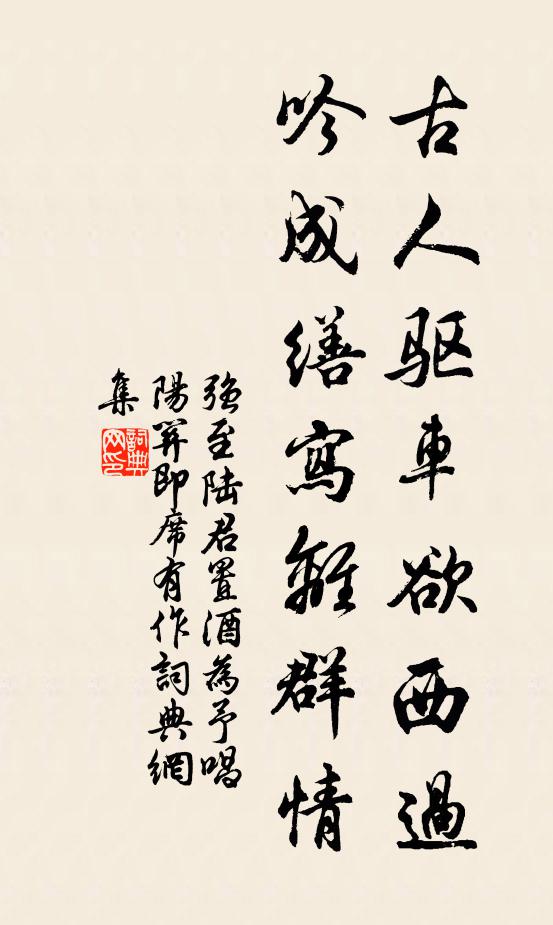 古人驱車欲西過
吟成繕寫離群情
强至陆君置酒為予唱
陽関即席有作詞典網
集
詞典
网印